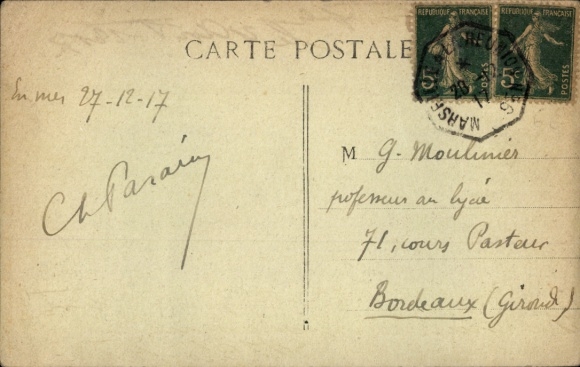 CARTE POSTALE
REPUBLIQUE FRANÇAISE
REPUBLIQUE FRANÇAISE
5c POSTES
5c POSTES
En mer 27-12-17
M G. Moulinier
professeur au lycée
71, cours Pasteur
Bordeaux (Gironde)